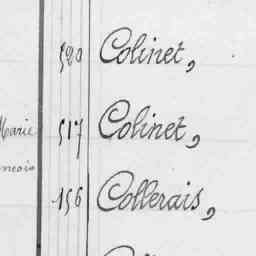 520 Colinet,
Marie 517 Colinet,
156 Collerais,